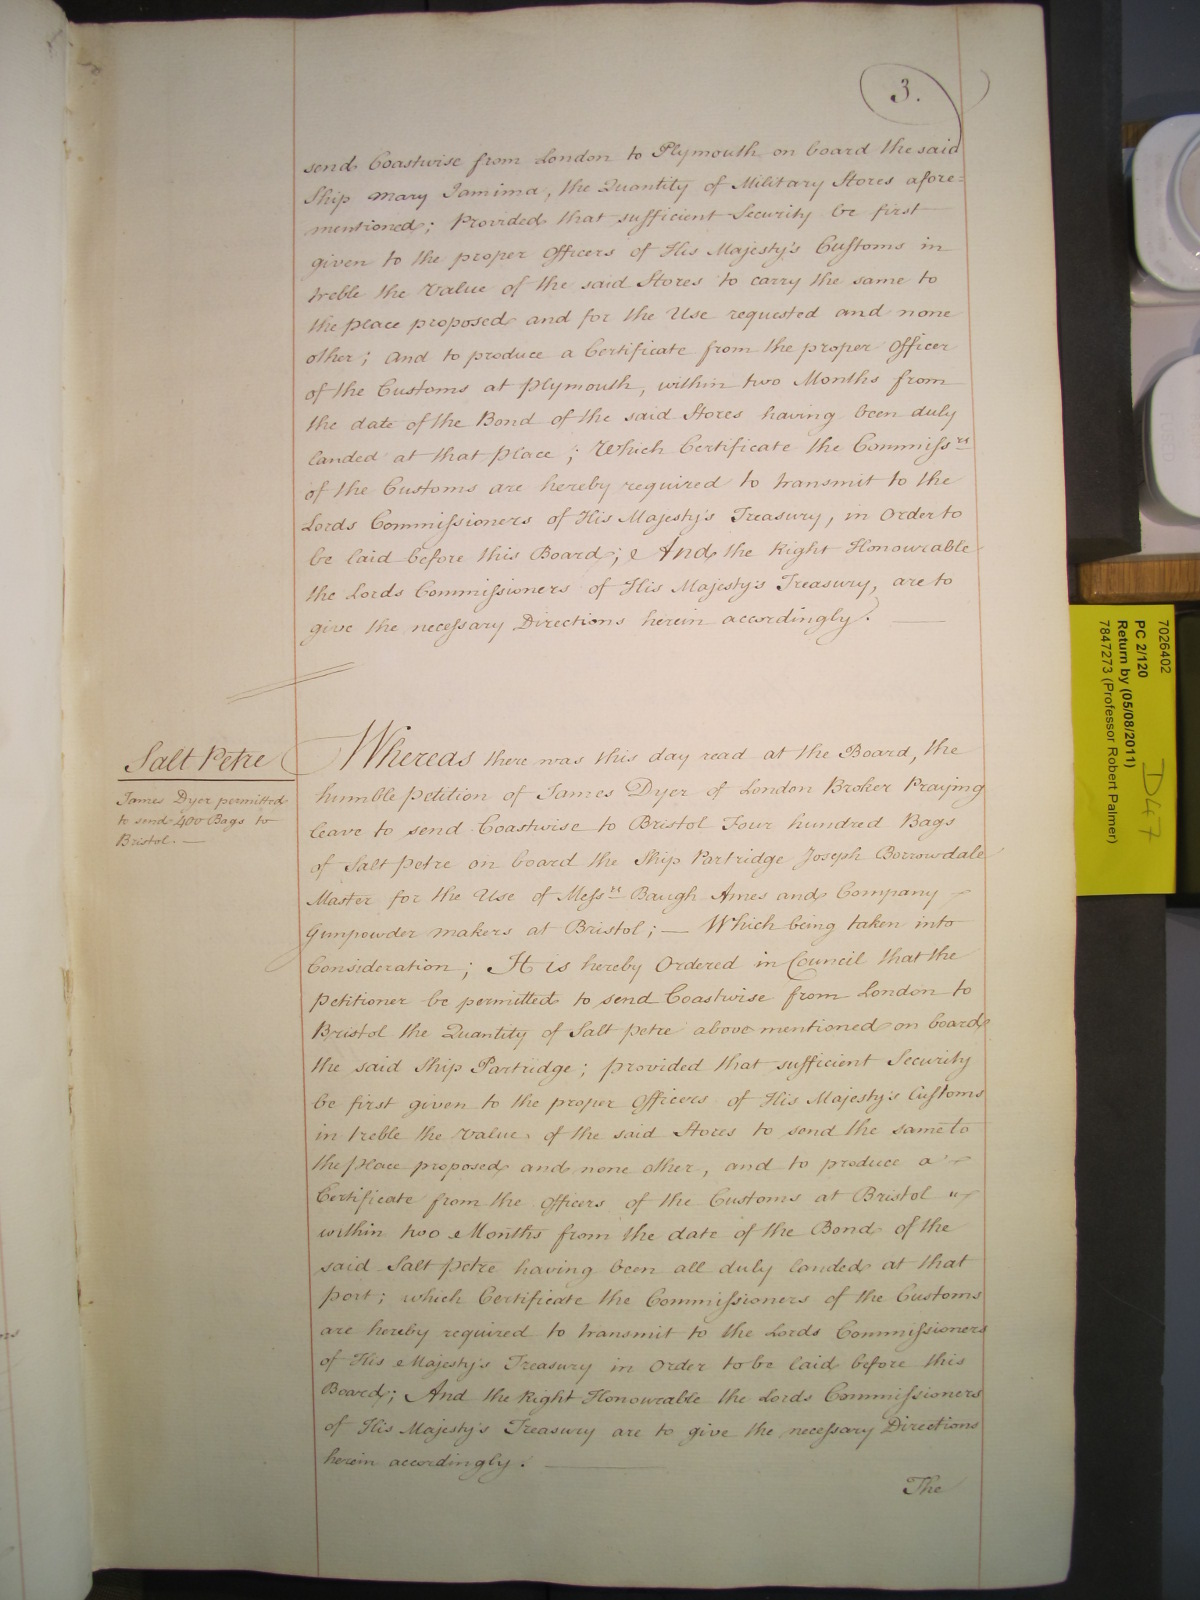 3.
send Coastwise from London to Plymouth on board the said
Ship Mary Jamima, the Quantity of Military Stores afore=
mentioned; Provided that sufficient Security be first
given to the proper Officers of His Majesty's Customs in
treble the Value of the said Stores to carry the same to
the place proposed and for the Use requested and none
other; and to produce a Certificate from the proper Officer
of the Customs at Plymouth, within two Months from
the date of the Bond of the said Stores having been duly
landed at that place; Which Certificate the Commissrs
of the Customs are hereby required to transmit to the
Lords Commissioners of His Majesty's Treasury, in Order to
be laid before this Board; And the Right Honourable
the Lords Commissioners of His Majesty's Treasury, are to
give the necessary Directions herein accordingly.
Salt Petre
James Dyer permitted
to send 400 Bags to
Bristol. —
Whereas there was this day read at the Board, the
humble Petition of James Dyer of London Broker Praying
leave to send Coastwise to Bristol Four hundred Bags
of Salt petre on board the Ship Partridge Joseph Borrowdale
Master for the Use of Messrs Baugh Ames and Company
Gunpowder makers at Bristol; — Which being taken into
Consideration; It is hereby Ordered in Council that the
Petitioner be permitted to send Coastwise from London to
Bristol the Quantity of Salt petre above mentioned on board
the said Ship Partridge; provided that sufficient Security
be first given to the proper Officers of His Majesty's Customs
in treble the Value of the said Stores to send the same to
the place proposed and none other, and to produce a
Certificate from the Officers of the Customs at Bristol
within two Months from the date of the Bond of the
said Salt petre having been all duly landed at that
port; which Certificate the Commissioners of the Customs
are hereby required to transmit to the Lords Commissioners
of His Majesty's Treasury in Order to be laid before this
Board; And the Right Honourable the Lords Commissioners
of His Majesty's Treasury are to give the necessary Directions
herein accordingly.
The
7026402
PC 2/120
Return by (05/08/2011)
7847273 (Professor Robert Palmer)
D47